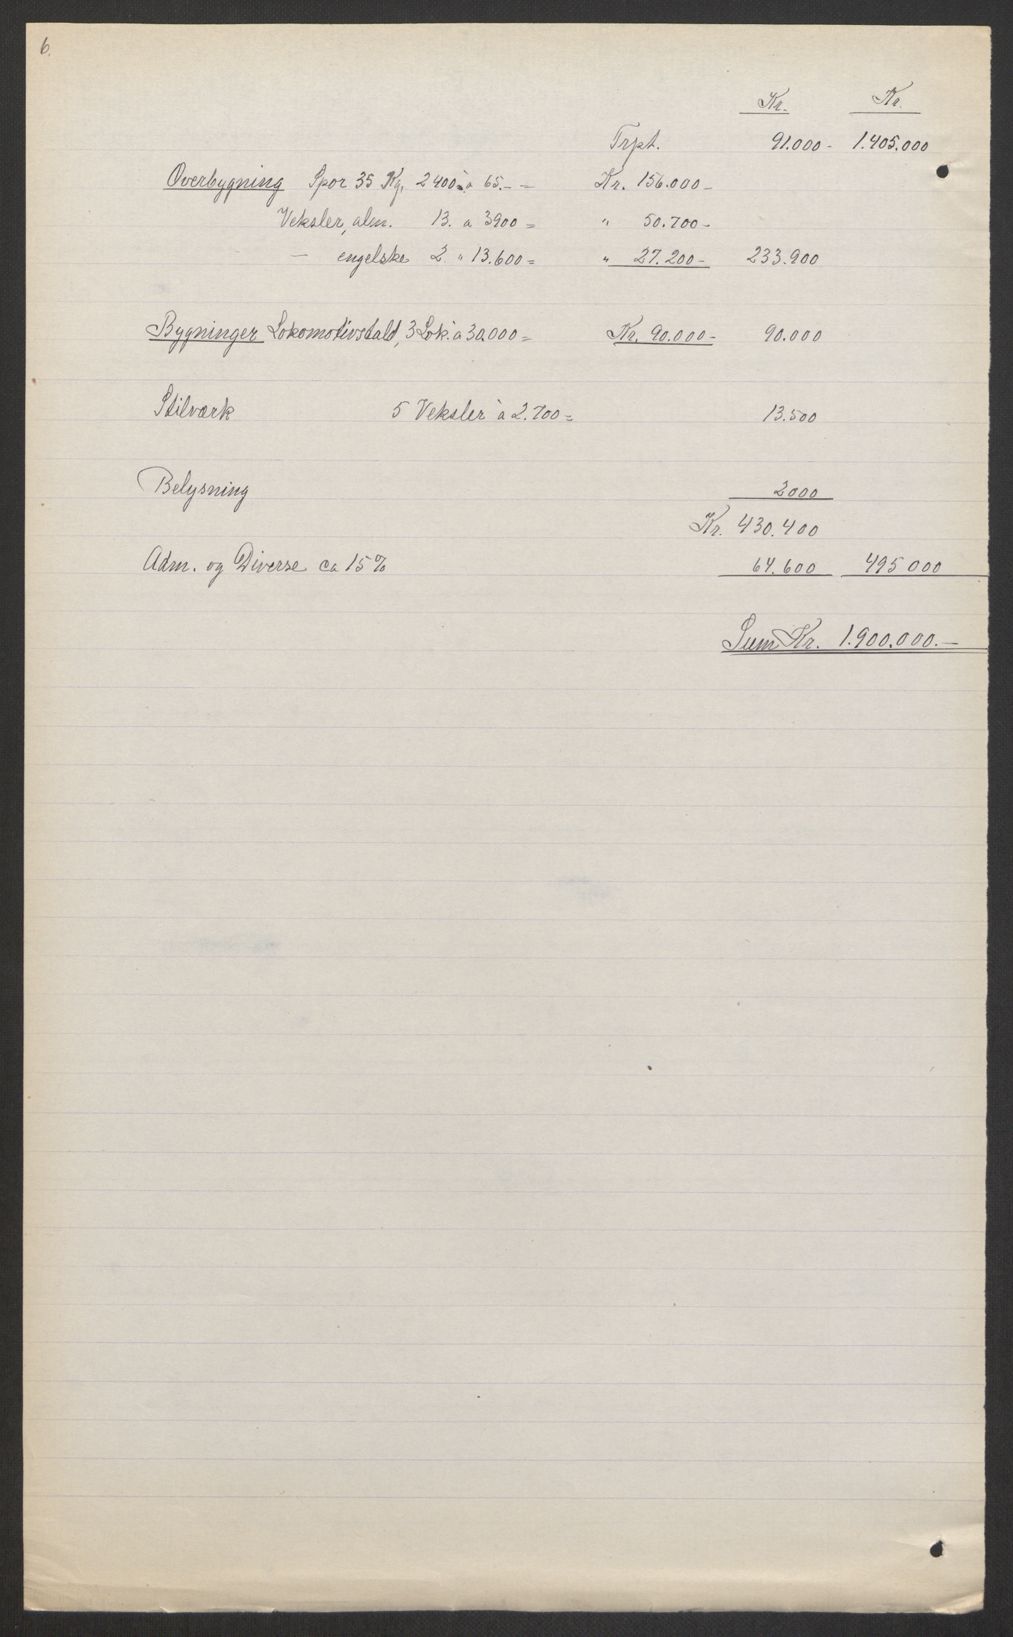 6.
Kr. Kr.
Trpt. 91.000- 1.405.000
Overbygning Spor 35 Kg. 2400 m a 65.- = Kr. 156.000-
Veksler, alm. 13. a 3900 = " 50.700-
— engelske 2 " 13.600 = " 27.200- 233.900
Bygninger Lokomotivstald, 3 Lok. à 30.000 = Kr. 90.000- 90.000
Stilværk 5 Veksler à 2.700 = 13.500
Belysning 2000
Kr. 430.400
Adm. og Diverse ca 15% 64.600 495 000
Sum Kr. 1.900.000.-